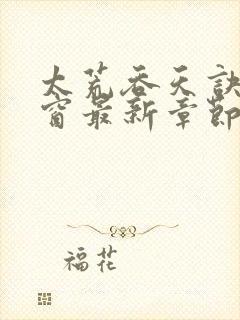 大荒吞天訣
窗最新章節
福花